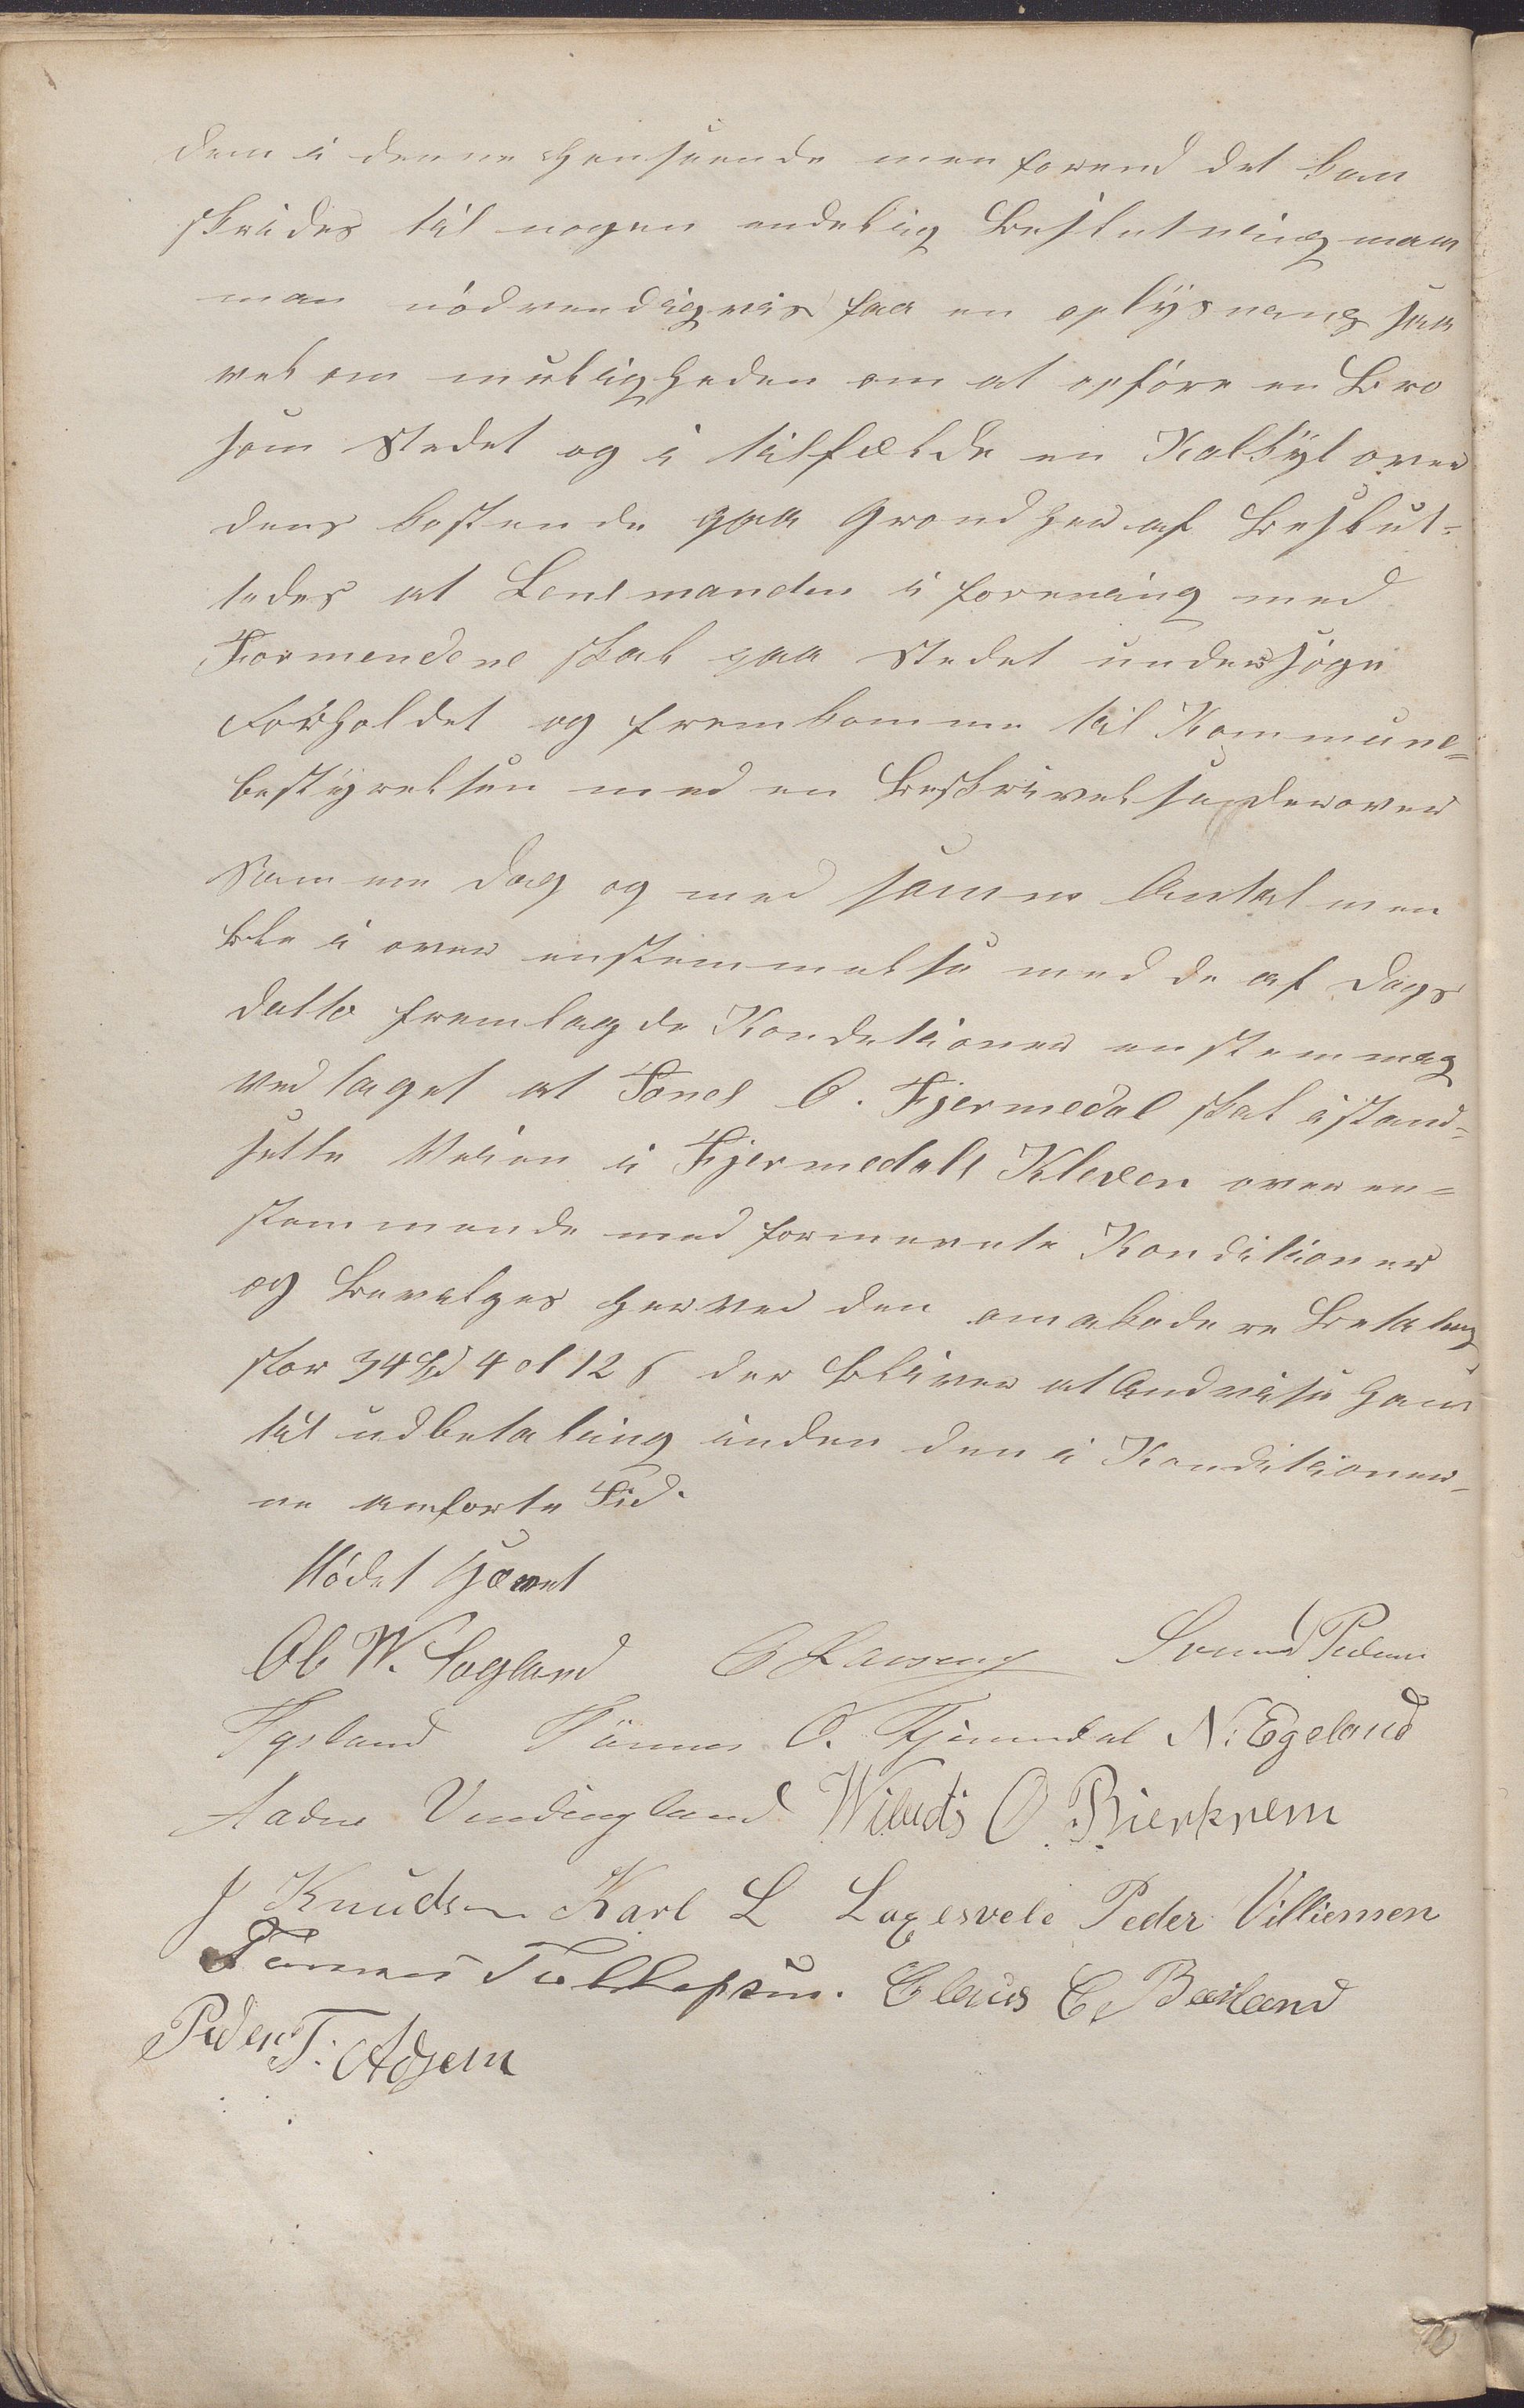 dem i denne Henseende men forend det kan
skrides til nogen endelig Beslutning maa
man nödvendigvis faa en oplysning saa
vel om muligheden om at opföre en Bro
som Stedet og i tilfælde en Kalkyl over
dens kostende paa Grond heraf Beslut=
tedes at Lensmanden i forening med
Formendene skal paa Stedet undersöge
Forholdet og fremkomme til Kommune=
bestyrelsen med en Beskrivelse derover
Samme Dag og med samme Antal men
ble i over enstemmelse med de af Dags
datto fremlagde Kondetioner enstemmeg
Ved taget at Tönes O. Fjermedal skal istand=
sette Veien i Fjermedals Kleven over en=
stemmende med formernte Konditioner
og Bevelges herved den omakode re Betaling
stor 34 Spd 4 ol 12 s der bliver at Andvise ham
til udbetaling inden den i Konditioner=
ne amforte Tid.
Mödet Hævet
Ol W. Sagland Svend Peders
Fysland Tönnes O. Fjermedal N. Egeland
Aadne Vindingland Wiluds O. Bierkrem
J Knudsen Karl L Laxesvele Peder Villiemsen
Tönnes Tollefsen. Claus C. Bærland
Peder T. Adsem